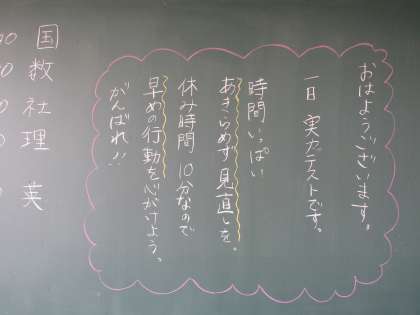 おはようございます。
一日 実力テストです。
時間いっぱい
あきらめず見直しを。
休み時間10分なので
早めの行動を心がけよう。
がんばれ!!
国
数
社
理
英